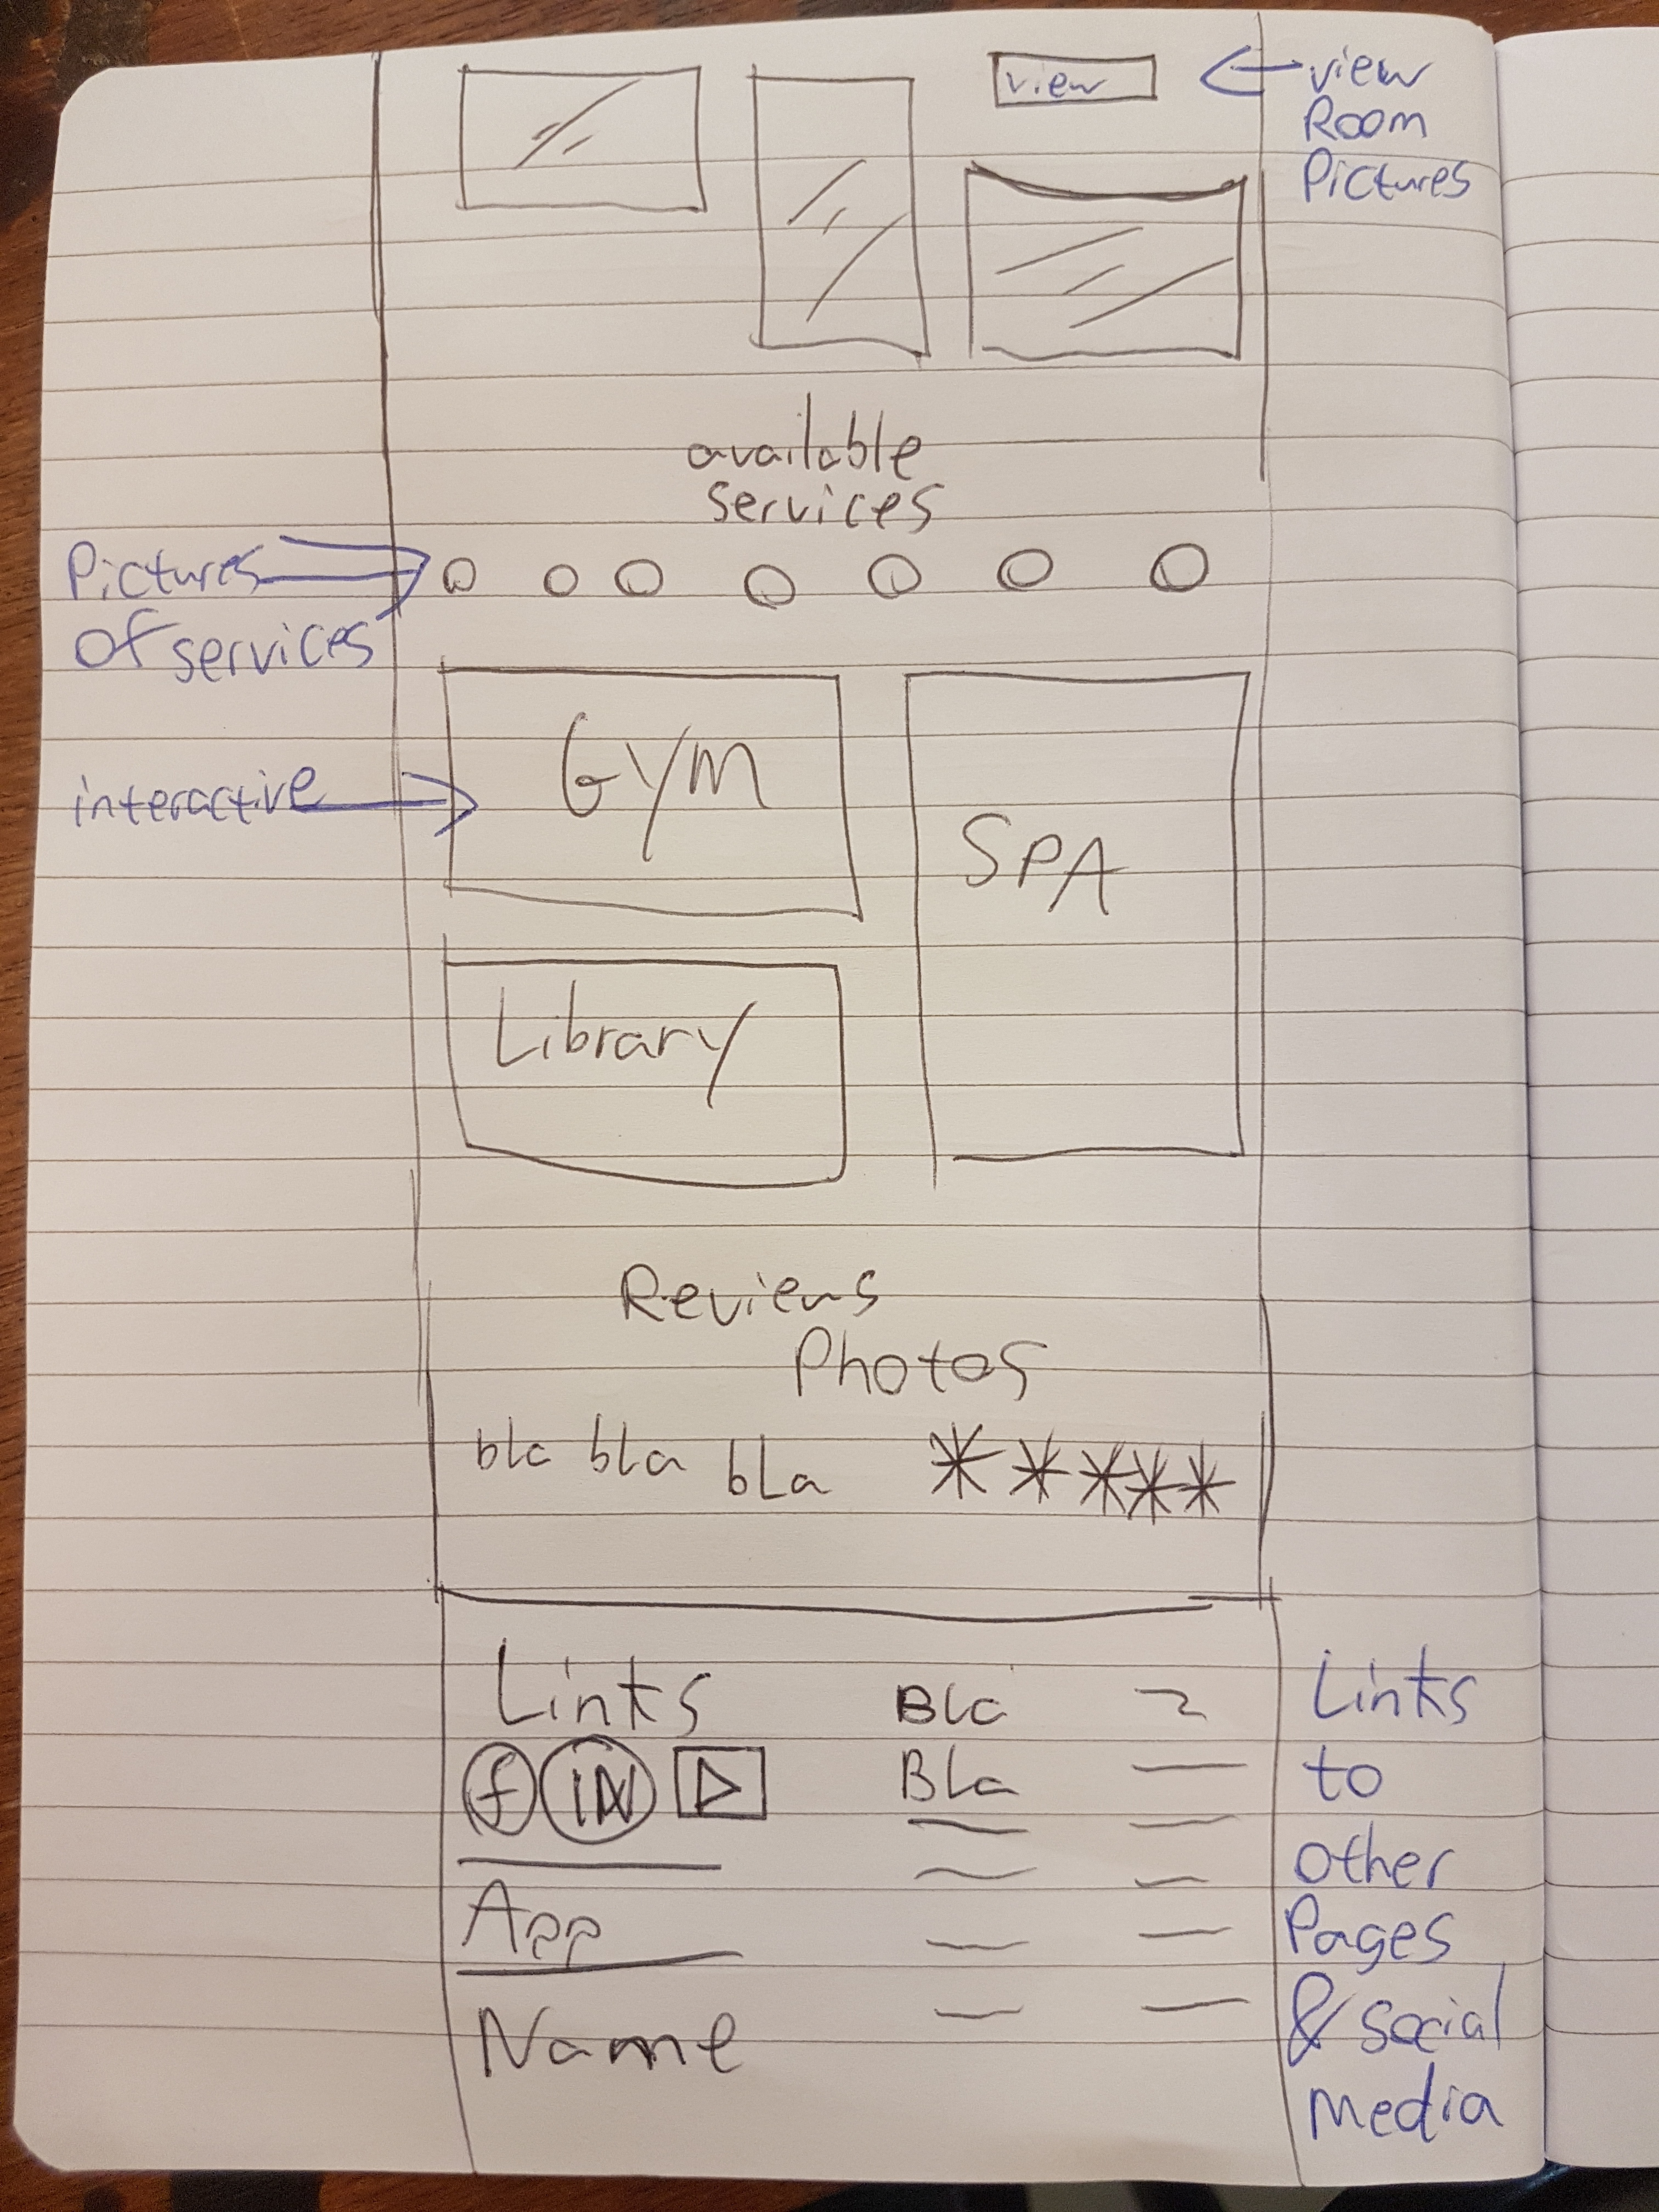 view
view
Room
Pictures
available
services
Pictures
of services
Gym
interactive
SPA
Library
Reviews
Photos
bla bla bla
Links
f IN
App
Name
Bla
Bla
Links
to
other
Pages
& social
media